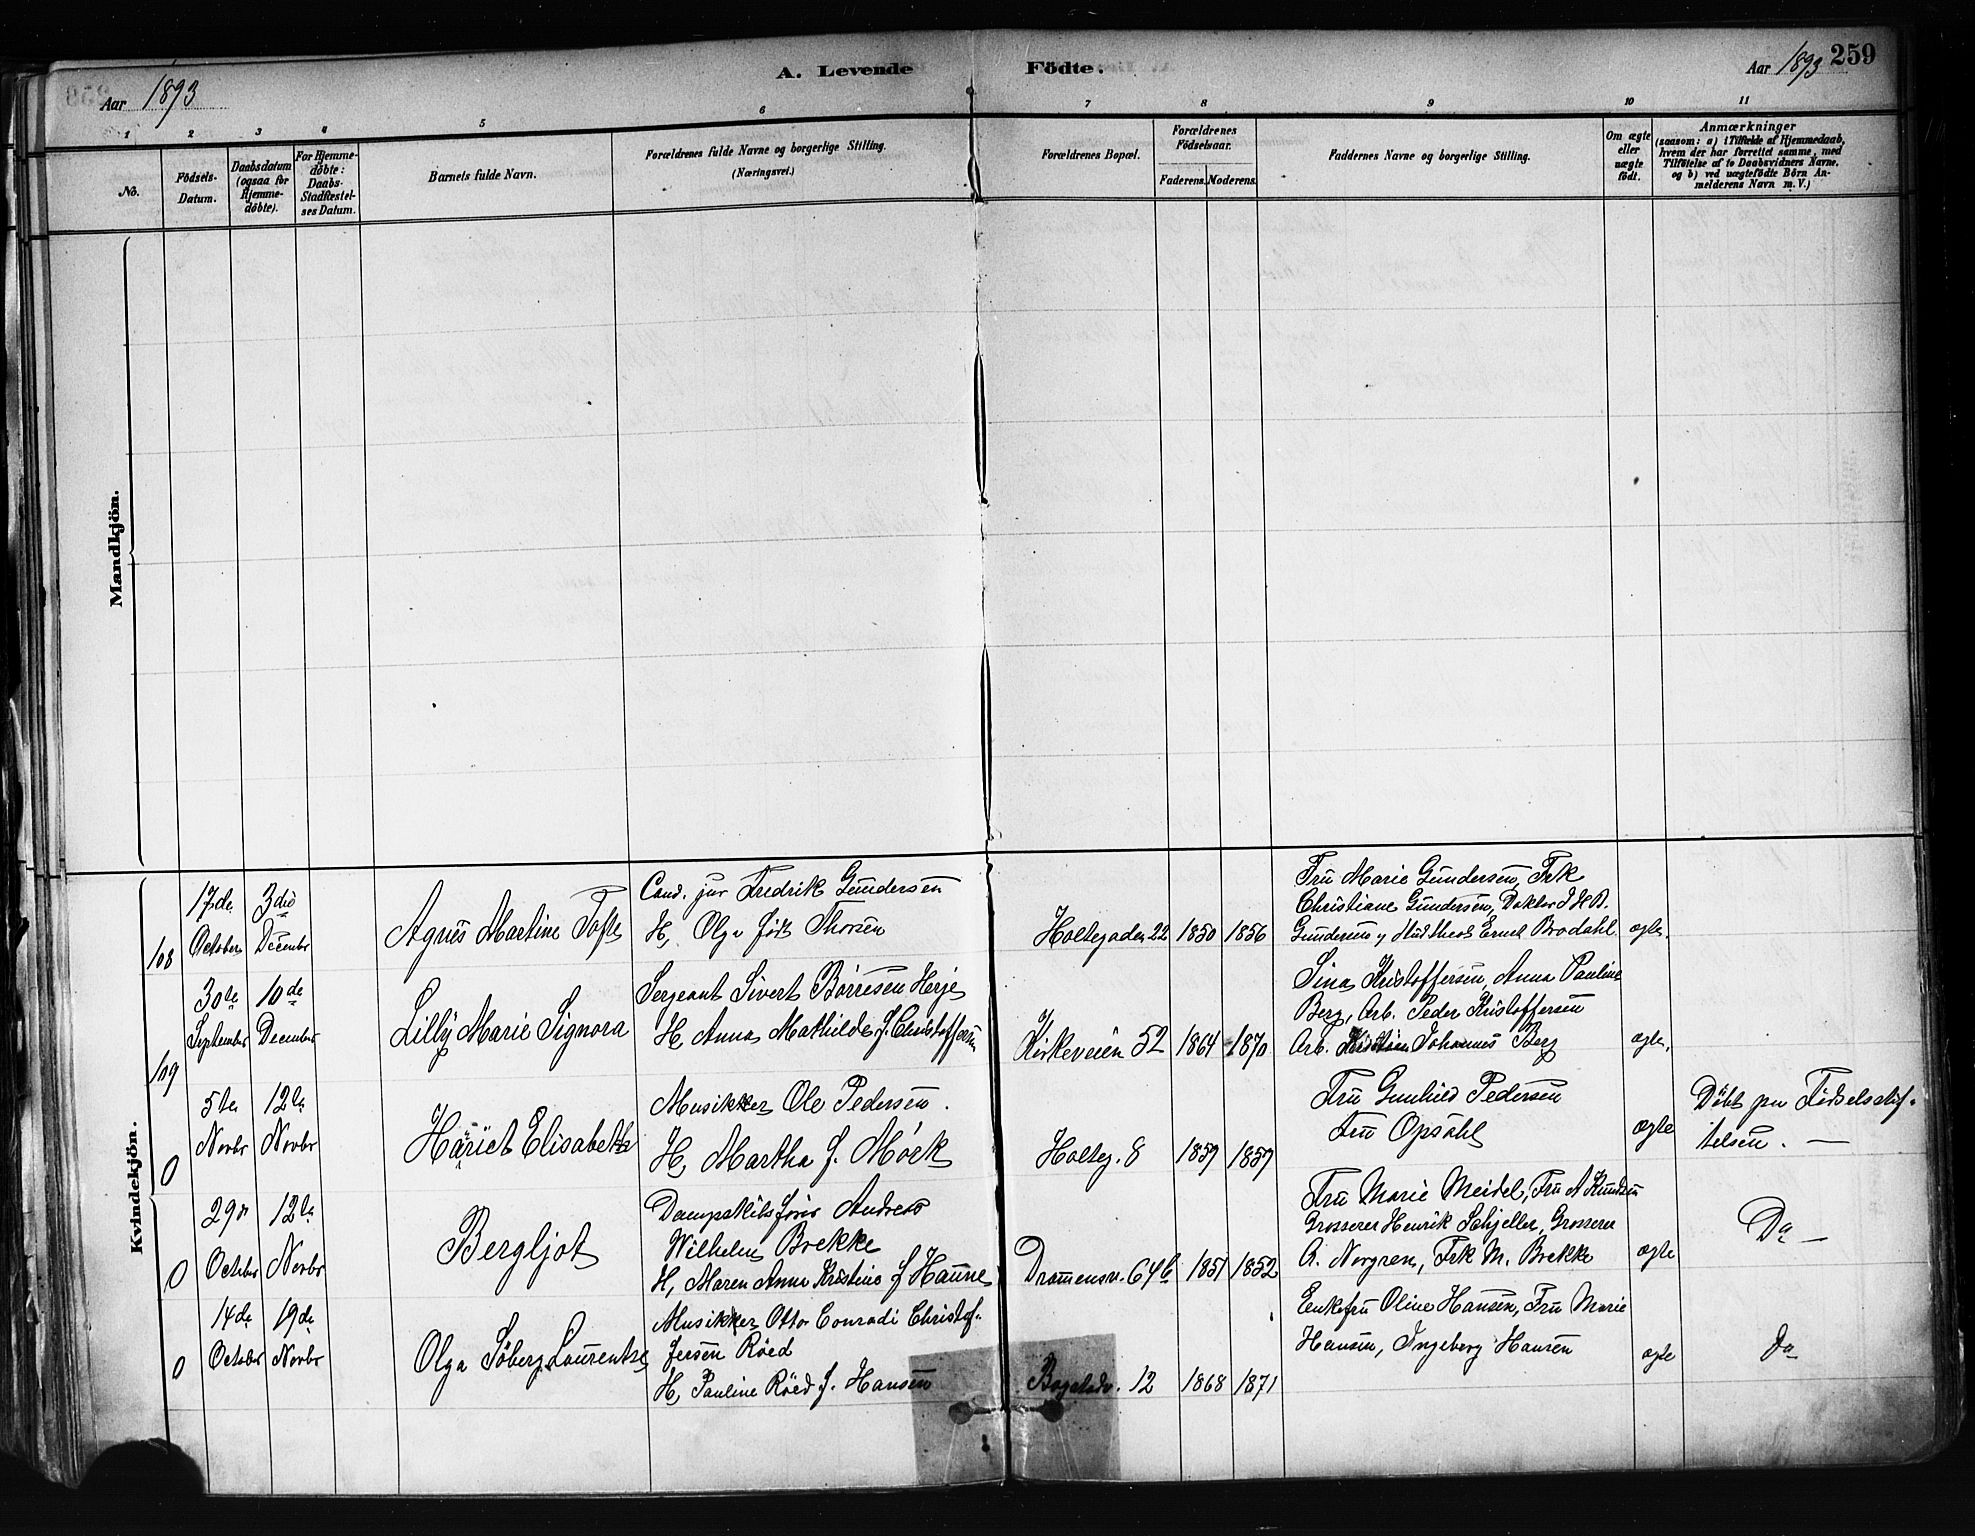 A. Levende Födte.
259
Aar 1893
Aar 1893
1 2 3 4 5 6 7 8 9 10 11
No.
Födsels-
Datum.
Daabsdatum
(ogsaa for
Hjemme-
döbte).
For Hjemme-
döbte:
Daabs-
Stadfæstel-
ses Datum.
Barnets fulde Navn.
Forældrenes fulde Navne og borgerlige Stilling.
(Næringsvei.)
Forældrenes Bopæl.
Forældrenes
Födselsaar.
Faderens. Moderens.
Faddernes Navne og borgerlige Stilling.
Om ægte
eller
uægte
födt.
Anmærkninger
(saasom: a) i Tilfælde af Hjemmedaab,
hvem der har forrettet samme, med
Tilföielse af to Daabsvidners Navne,
og b) ved uægtefödte Börn An-
melderens Navn m. V.)
Mandkjön.
Kvindekjön.
108
17de
October
3die
Decembr
Agnes Martine Tofte
Cand. jur Fredrik Gundersen
H, Olga født Thorsen
Holtegaden 22
1850
1856
Fru Marie Gundersen, Frk
Christiane Gundersen, Doktor J H B.
Gundersen Ernst Brodahl
ægte.
109
30te
September
10de
December
Lilly Marie Signora
Sergeant Sivert Børresen Herje
H, Anna Mathilde f. Christoffersen
Kirkeveien 52
1864
1870
Sina Kristoffersen, Anna Pauline
Berg, Arb. Peder Kristoffersen
Arb. Johannes Berg
ægte,
0
5te
Novbr
12te
Novbr
Hariet Elisabeth
Musikker Ole Pedersen.
H, Martha f. Mørk
Holteg. 8
1859
1859
Fru Gunhild Pedersen
Fru Opsahl
ægte
Døbt paa Fødselsstif-
telsen. —
0
29de
October
12te
Novbr
Bergljot
Dampskibsfører Andreas
Wilhelm Brekke
H, Maren Anna Kristine f Hanne
Dramensv. 64b
1851
1852
Fru Marie Meidel, Fru A Knudsen
Grosserer Henrik Schjeller, Grosserer
A. Norgren, Frk M. Brekke
ægte
Do —
0
14de
October
19de
Novbr
Olga Søberg Laurentze
Musikker Otto Conradi Christof-
fersen Røed
H, Pauline Røed f. Hansen
Bogstadv. 12
1868
1871
Enkefru Oline Hansen, Fru Marie
Hansen, Ingeborg Hansen
ægte
Do